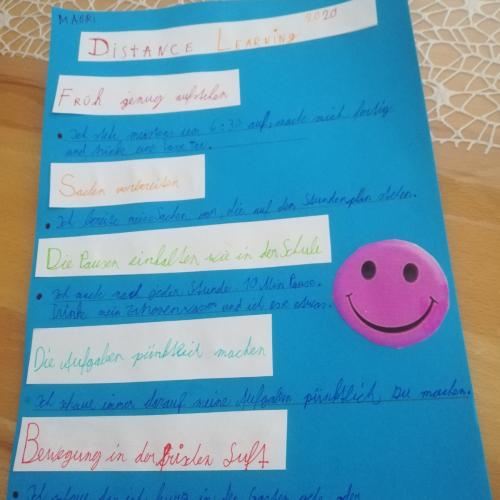 MAORI
DISTANCE LEARNING 2020
FRÜH genug aufstehen
• Ich stehe meistens um 6:30 auf, mache mich fertig
und trinke eine Tasse Tee.
Sachen vorbereiten
• Ich bereite meine Sachen vor, die auf dem Stundenplan stehen.
Die Pausen einhalten wie in der Schule
• Ich mache nach jeder Stunde 10 Min Pause.
Trinke mein Zitronenwasser und ich esse etwas.
Die Aufgaben pünktlich machen
• Ich schaue immer darauf meine Aufgaben pünktlich zu machen.
Bewegung in der frischen Luft